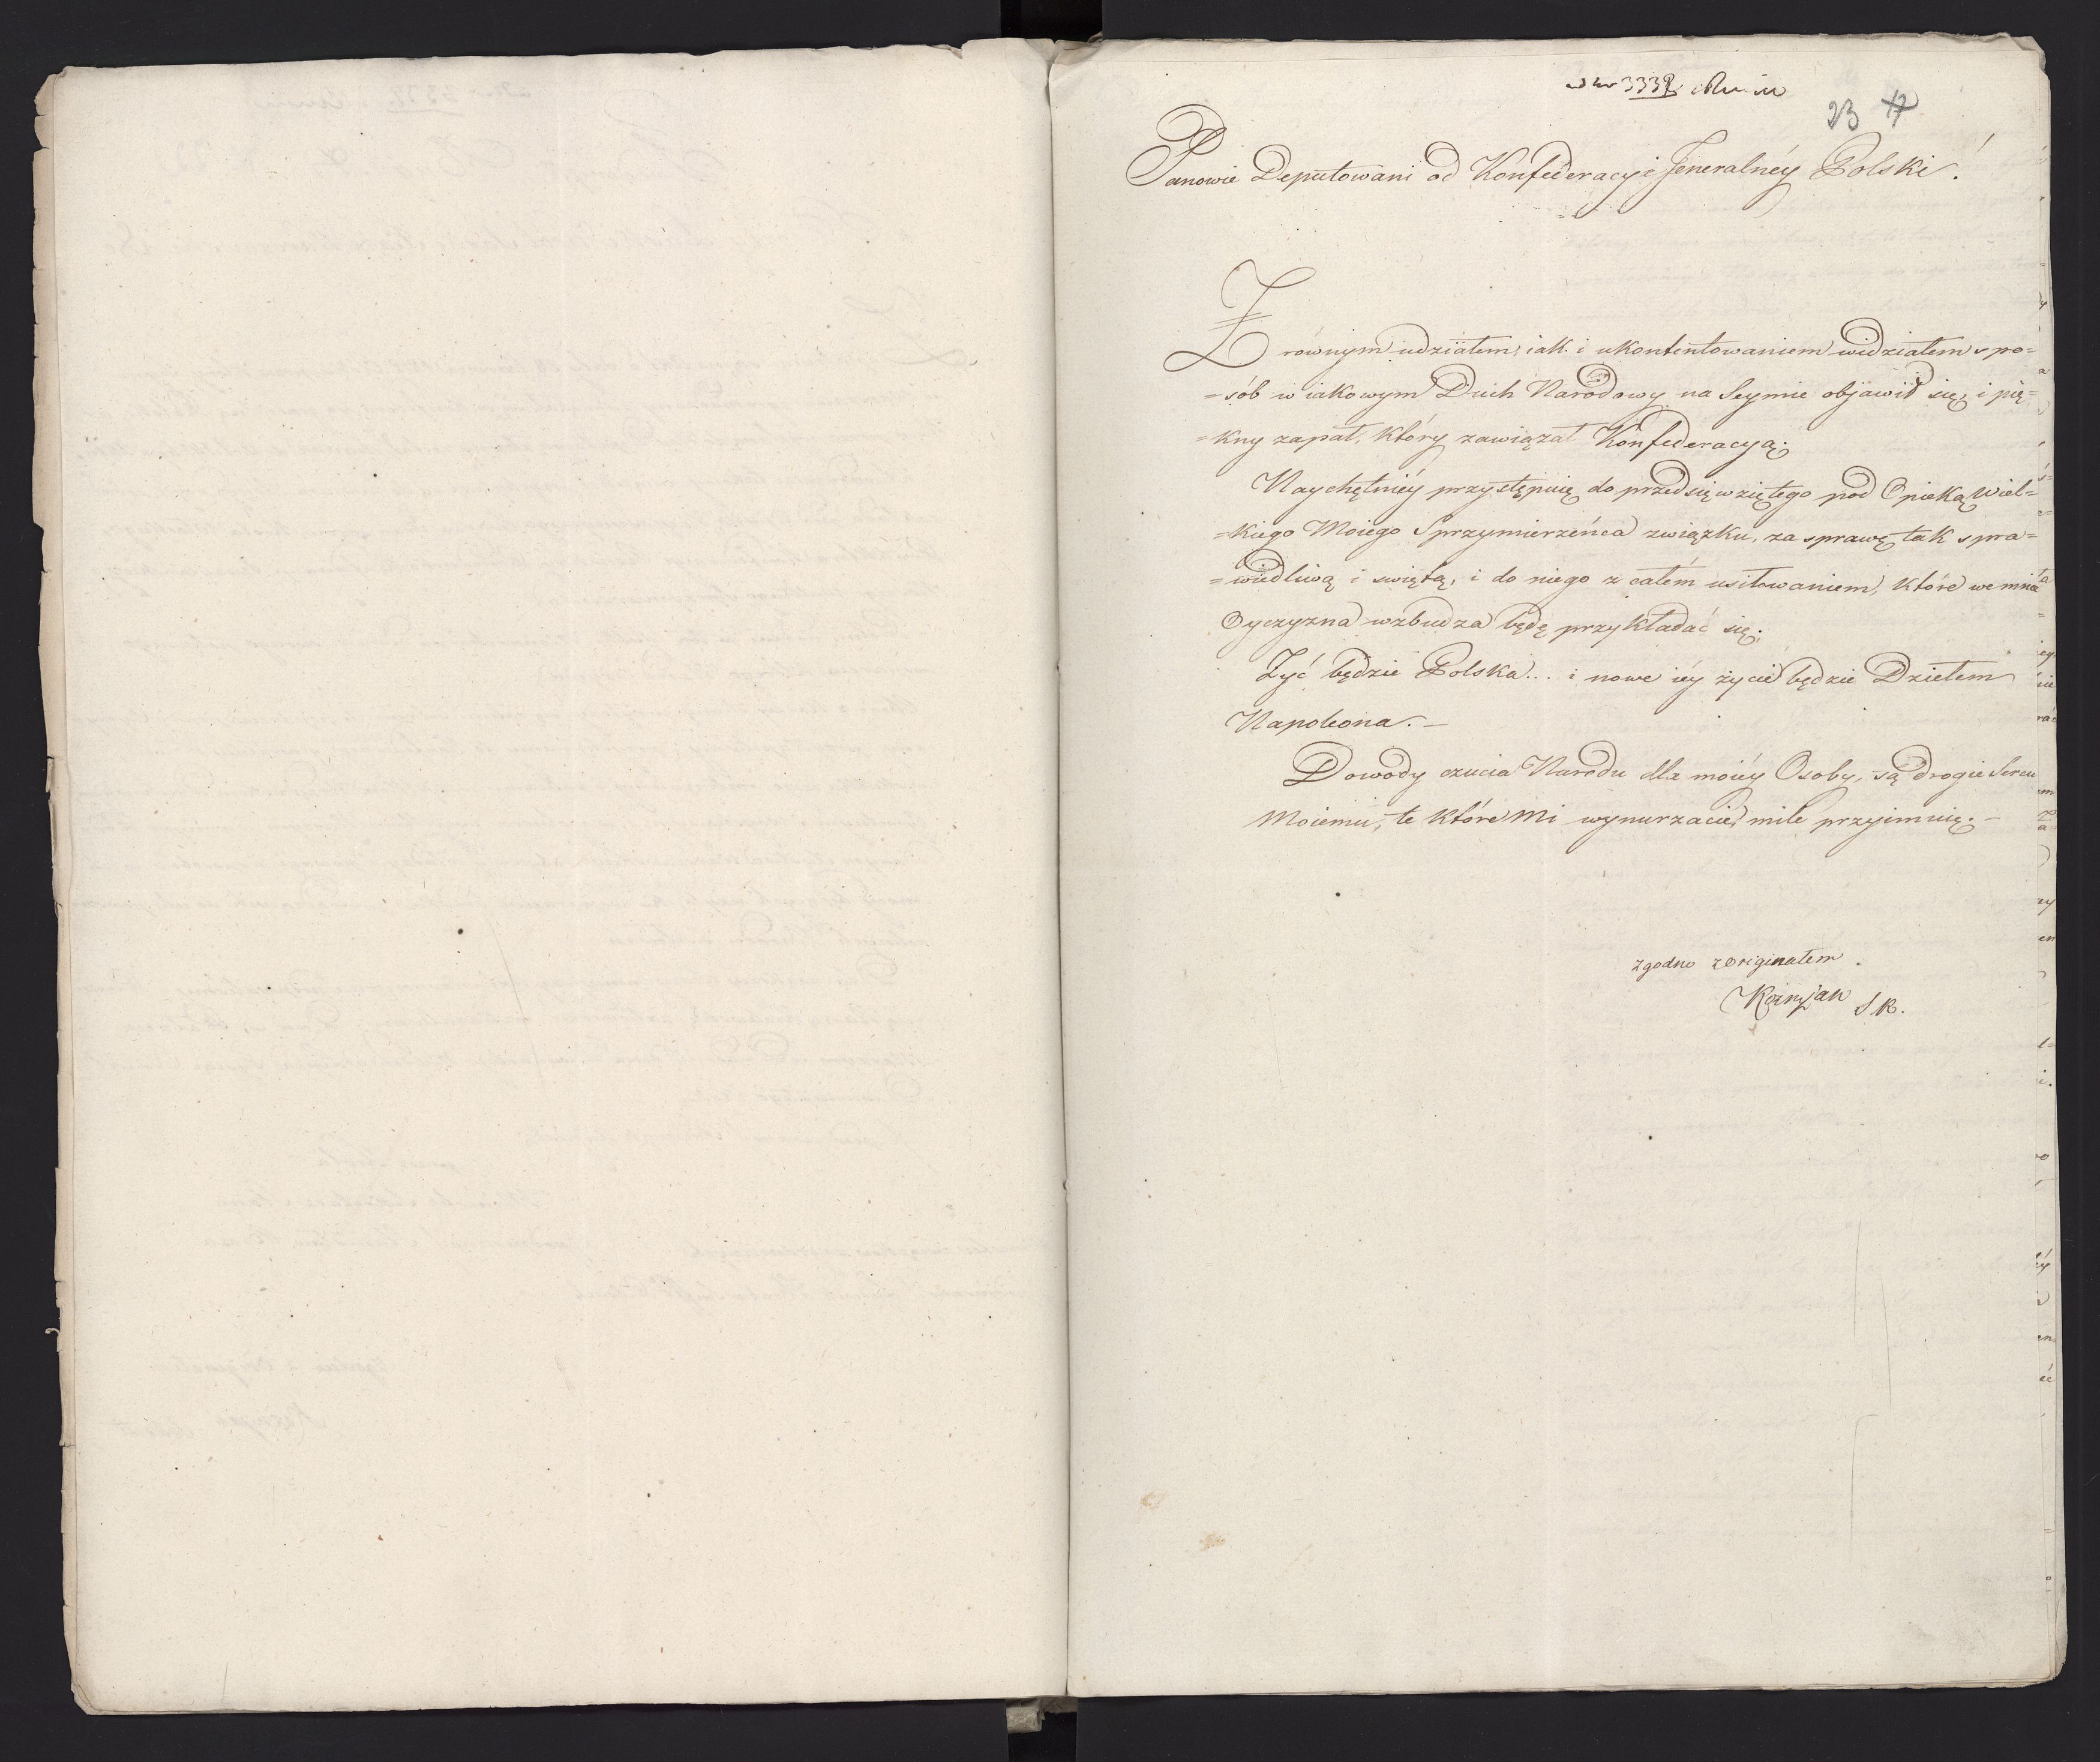 23 17
Panowie Deputowani od Konfederacyi Jeneralnéy Polski!
Z równym udziałem, iak i ukontentowaniem widziałem spo=
=sób w iakowym Duch Narodowy na Seymie objawił się, i pię=
=kny zapał, który zawiązał Konfederacyą;
Naychętniéy przystępuię do przedsięwziętego pod Opieką Wiel=
=kiego Moiego Sprzymierzeńca związku, za sprawę tak spra=
=wiedliwą i swiętą, i do niego z całém usiłowaniem, które we mnie
Oyczyzna wzbudza będę przykładać się;
Żyć będzie Polska... i nowe iéy życie będzie Dziełem
Napoleona.–
Dowody czucia Narodu dla moiéy Osoby, są drogie Sercu
Moiemu, te które Mi wynurzacie, mile przyimuię.–
zgodno z Originałem.
Koźmjan S.R.